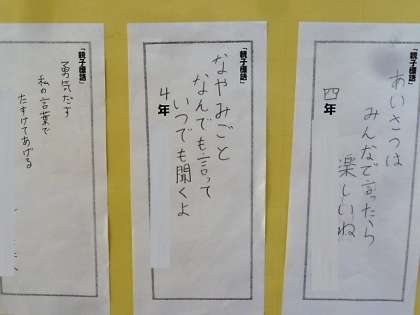 「親子標語」
あいさつは
みんなで言ったら
楽しいね
四年
「親子標語」
なやみごと
なんでも言って
いつでも聞くよ
4年
「親子標語」
勇気だす
私の言葉で
たすけてあげる